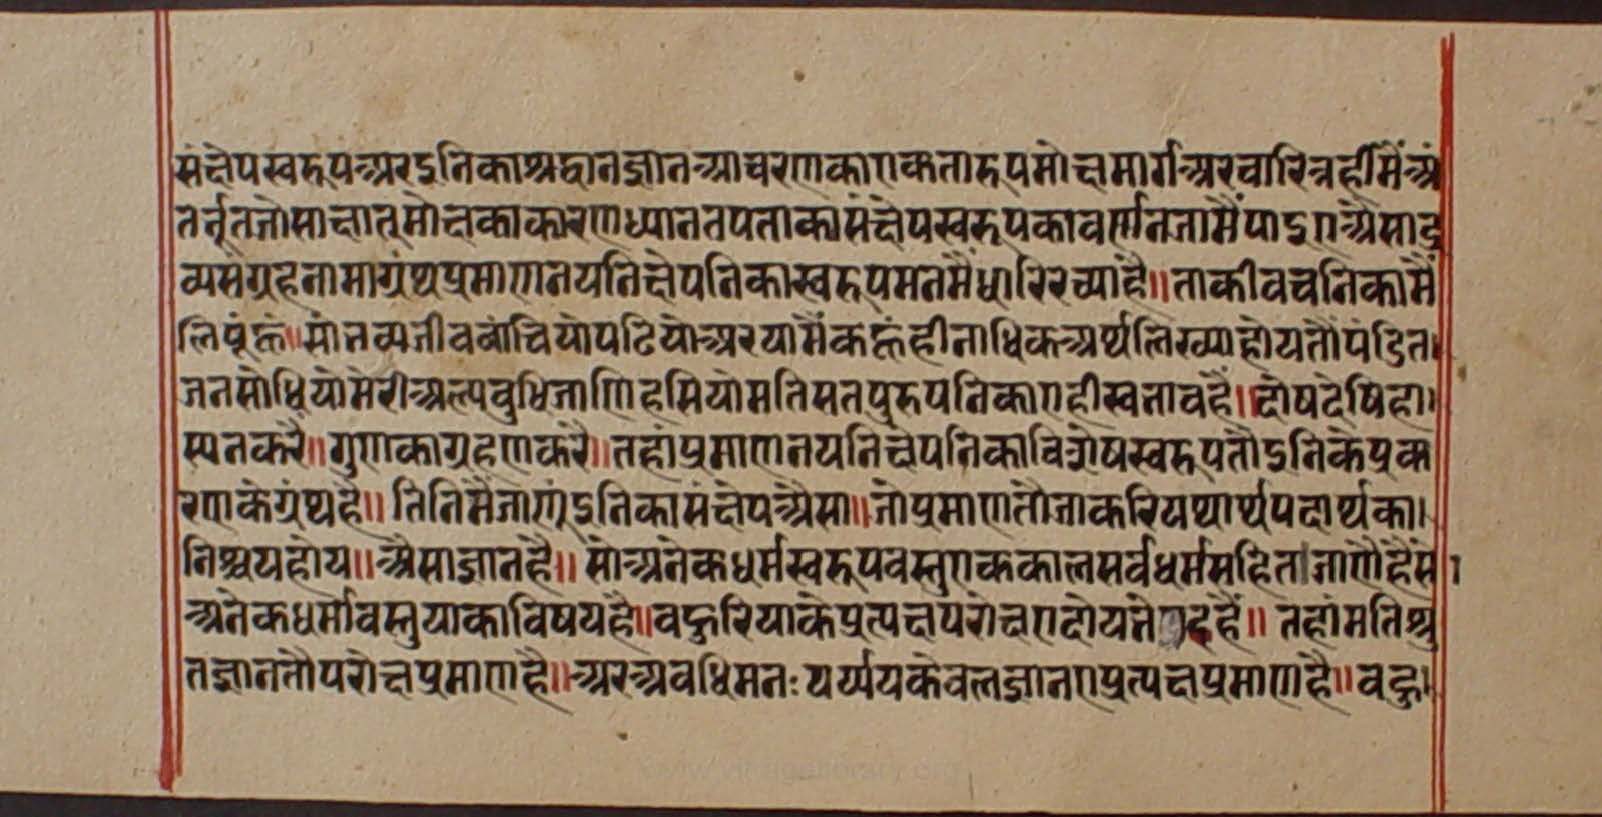 संक्षेपस्वरूपअरइनिकाश्रद्धानज्ञानआचरणकाएकतारूपमोक्षमार्गअरचारित्रहीमैंअं
तर्भूतजोसाक्षात्मोक्षकाकारणध्यानतपताकासंक्षेपस्वरूपकावर्णनजामैंपाइएअैसाद्र
व्यसंग्रहनामाग्रंथप्रमाणनयनिक्षेपनिकास्वरूपमनमैंधारिरच्याहै॥ताकीवचनिकामैं
लिषूंहूं॥सोभव्यजीवबांचियोपढियोअरयामैंकहूंहीनाधिकअर्थलिख्याहोयतौपंडित।
जनसोधियोमेरीअल्पबुधिजाणिहसियोमतिसतपुरुषनिकाएहीस्वभावहै॥दोषदेषिहा।
स्यनकरै॥गुणकाग्रहणकरै॥तहांप्रमाणनयनिक्षेपनिकाविशेषस्वरूपतौइनिकेप्रक
रणकेग्रंथहै॥तिनिमैंजाणूंइनिकासंक्षेपअैसा॥जोप्रमाणतौजाकरियथार्थपदार्थका।
निश्चयहोय॥अैसाज्ञानहै॥सोअनेकधर्मस्वरूपवस्तुएककालसर्वधर्मसहितजाणैहैसो
अनेकधर्मावस्तुयाकाविषयहै॥बहुरियाकेप्रत्यक्षपरोक्षएदोयभेदहैं॥तहांमतिश्रु
तज्ञानतौपरोक्षप्रमाणहै॥अरअवधिमनःपर्य्ययकेवलज्ञानएप्रत्यक्षप्रमाणहै॥बहु।